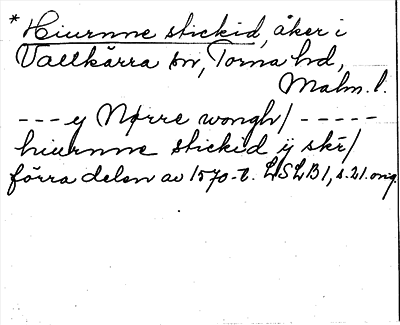 * Hiurnne stickid, åker i
Vallkärra sn, Torna hd,
Malm. l.
--- y Nørre wongh/ -----
hiurnne stickid ÿ skr/
förra delen av 1570-t. LSLB1, s. 21. orig.